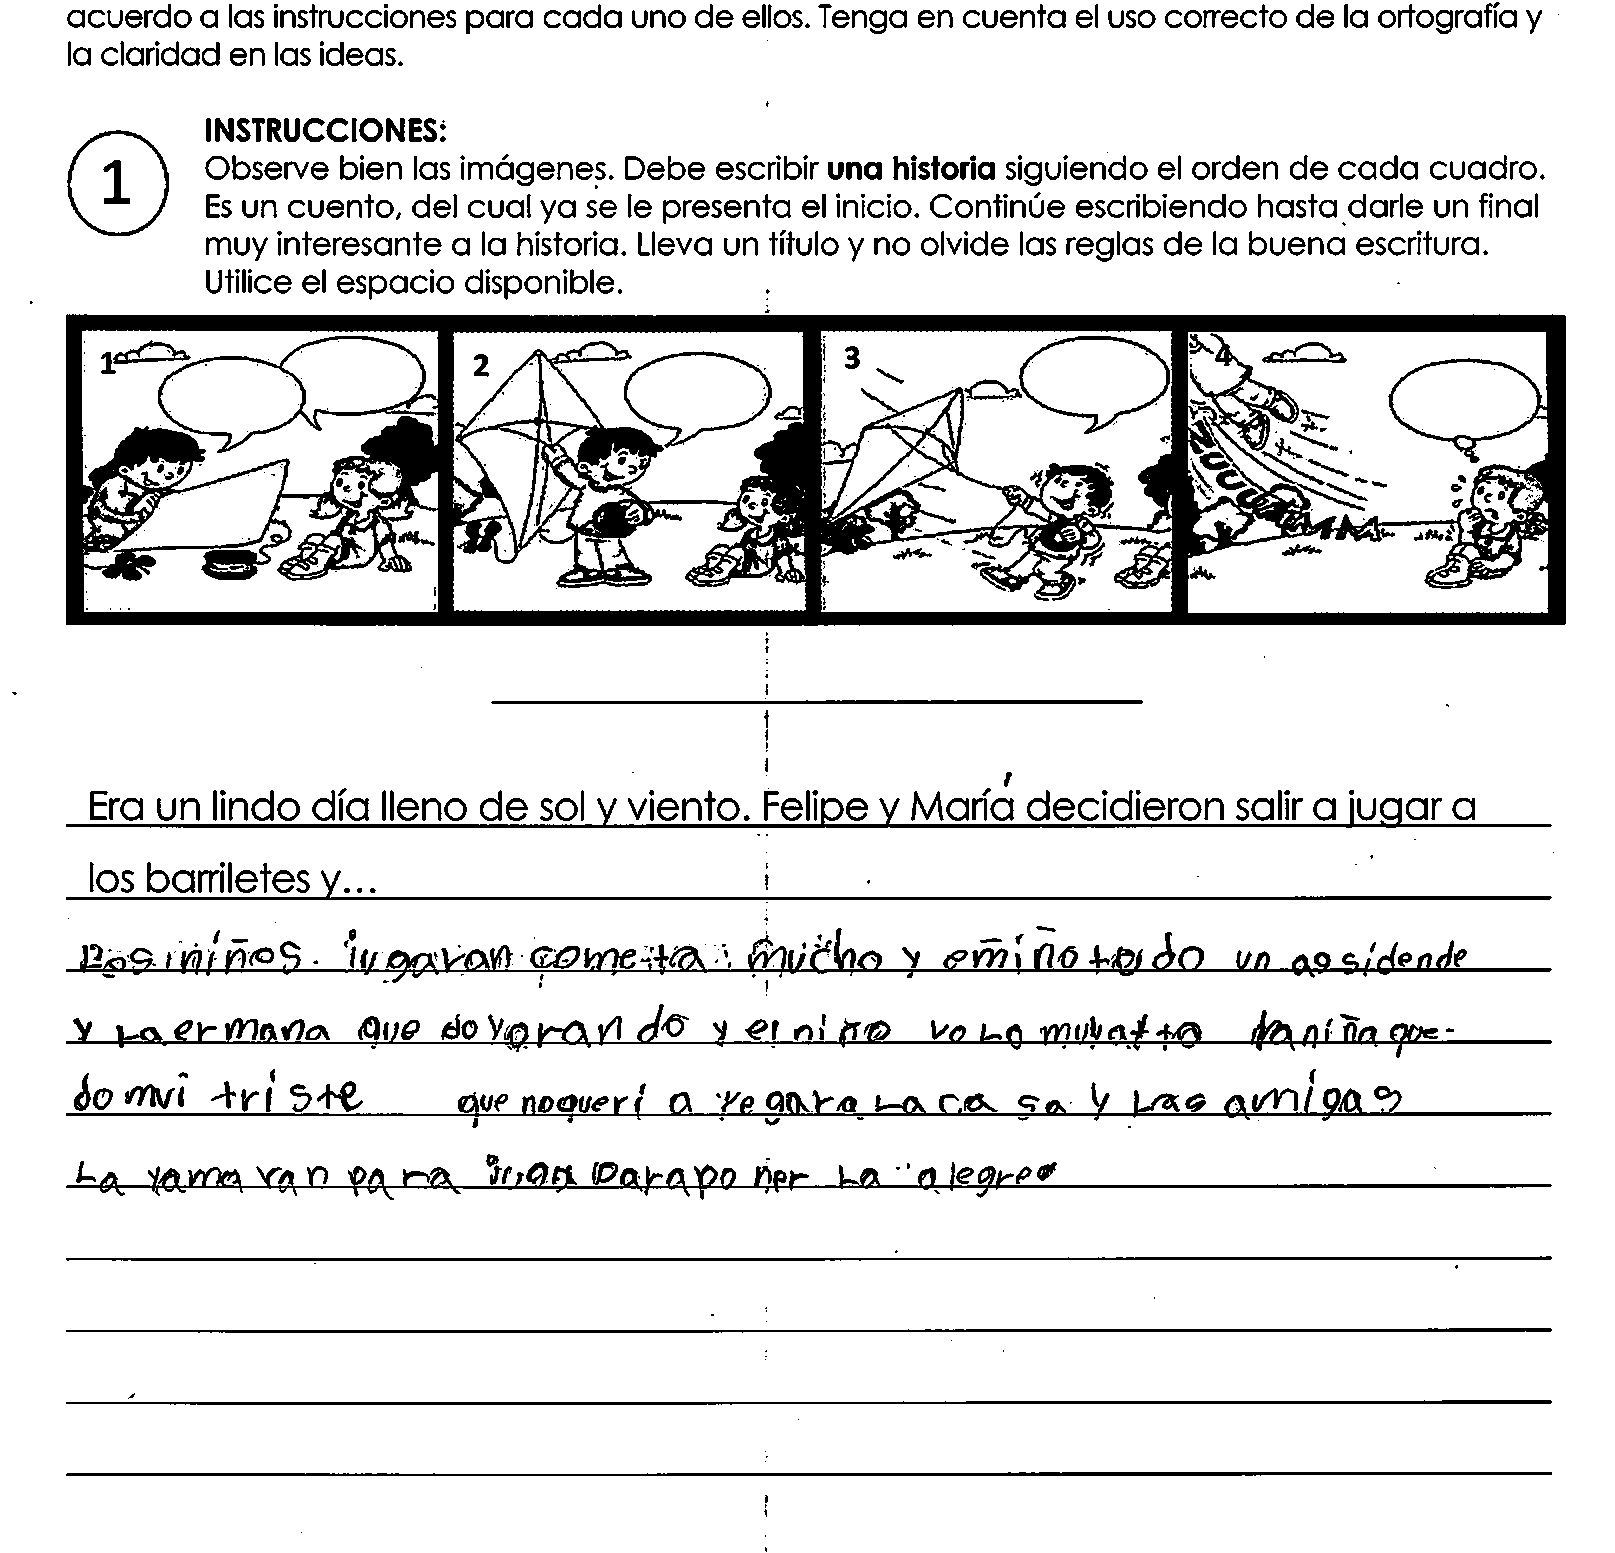 acuerdo a las instrucciones para cada uno de ellos. Tenga en cuenta el uso correcto de la ortografía y
la claridad en las ideas.
1
INSTRUCCIONES:
Observe bien las imágenes. Debe escribir una historia siguiendo el orden de cada cuadro.
Es un cuento, del cual ya se le presenta el inicio. Continúe escribiendo hasta darle un final
muy interesante a la historia. Lleva un título y no olvide las reglas de la buena escritura.
Utilice el espacio disponible.
1
2
3
4
ZUUUUMMM
Era un lindo día lleno de sol y viento. Felipe y María decidieron salir a jugar a
los barriletes y...
Los niños. jugaran cometa mucho y emiño tdo un assidende
y la ermana que do yorando y el niño volo muy atto la niña que-
do mui triste que noquería yegara la casa y las amigas
La yamavan para juga para poner la alegre